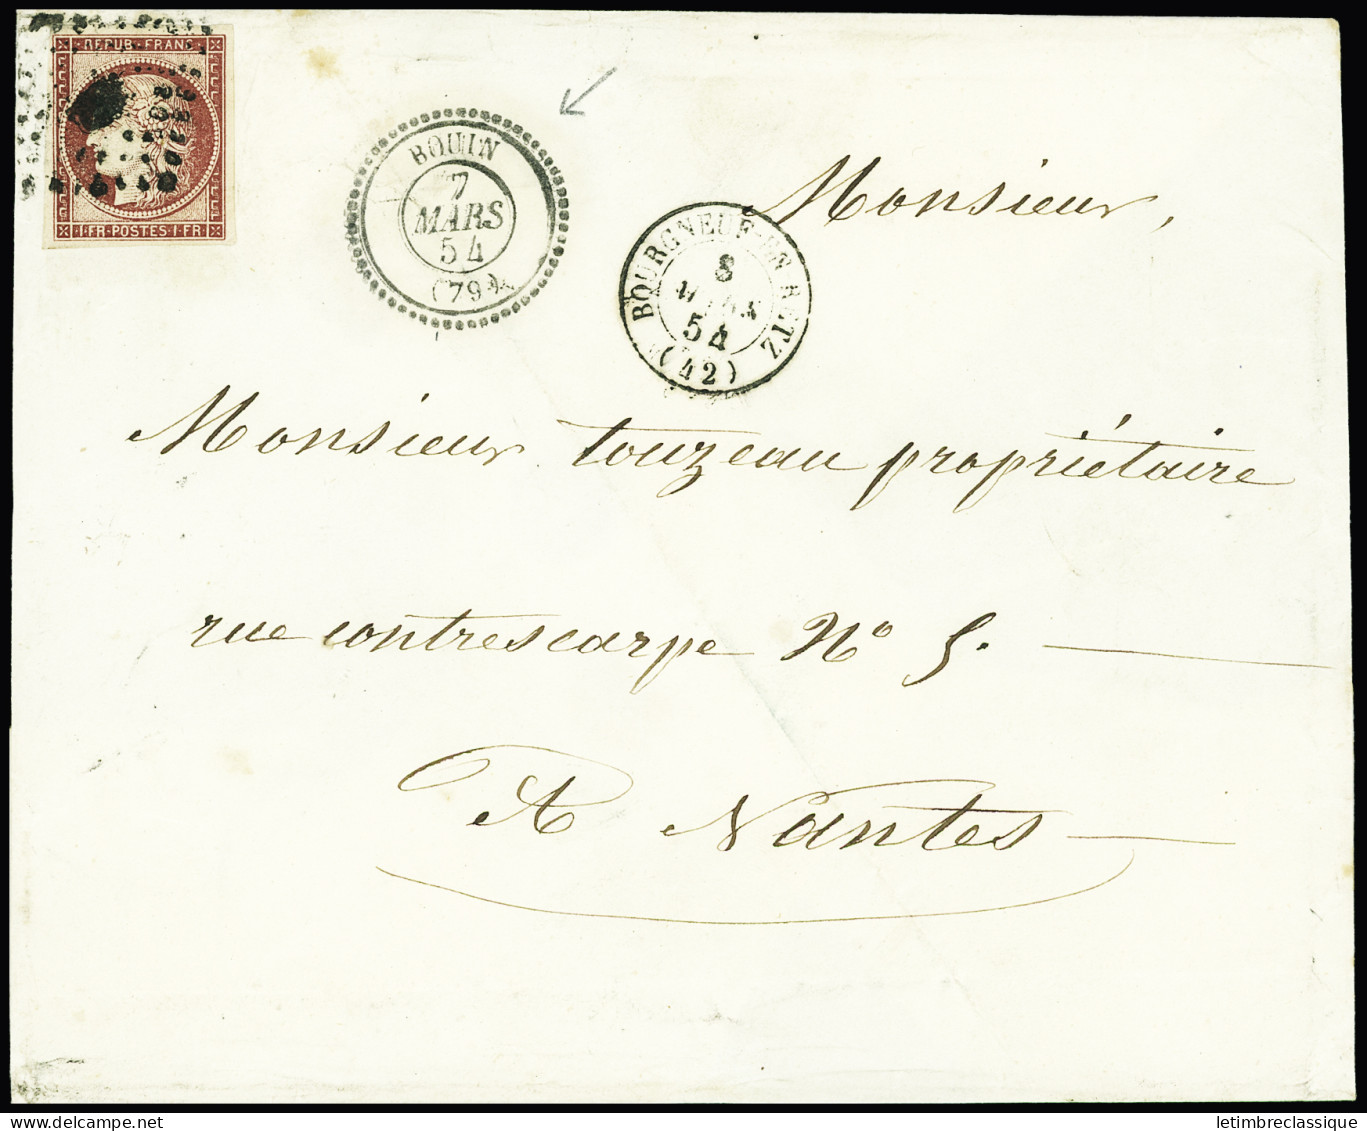 REPUB·FRANC
1·FR·POSTES·1·FR
BOUIN
7
MARS
54
(79)
BOURGNEUF-EN-RETZ
8
MARS
54
(42)
Monsieur,
Monsieur Touzeau propriétaire
rue contrescarpe N° 5.
A Nantes
letimbreclassique